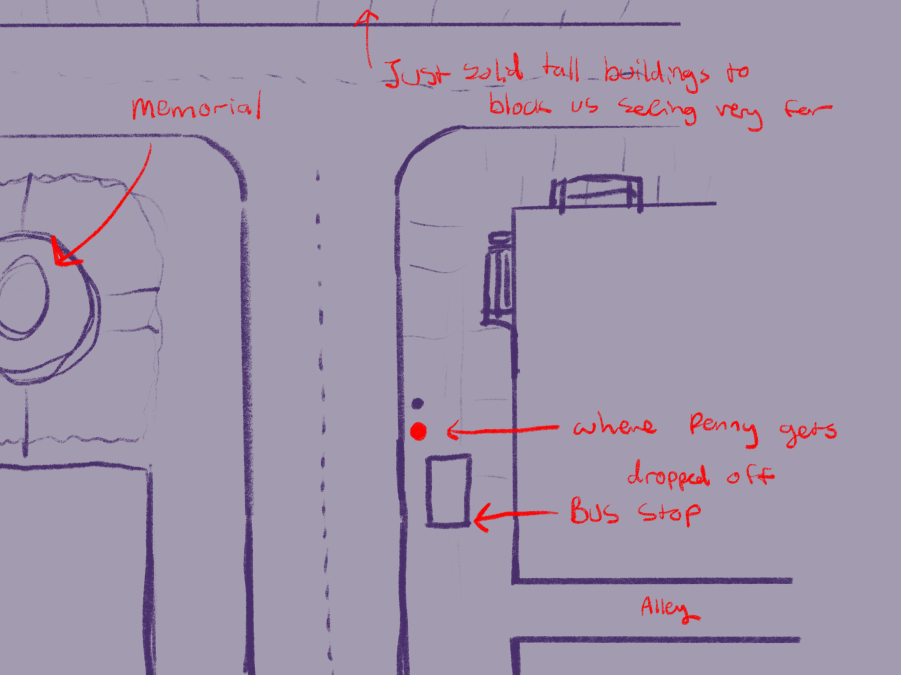 Just solid tall buildings to
block us seeing very far
Memorial
where Penny gets
dropped off
Bus stop
Alley